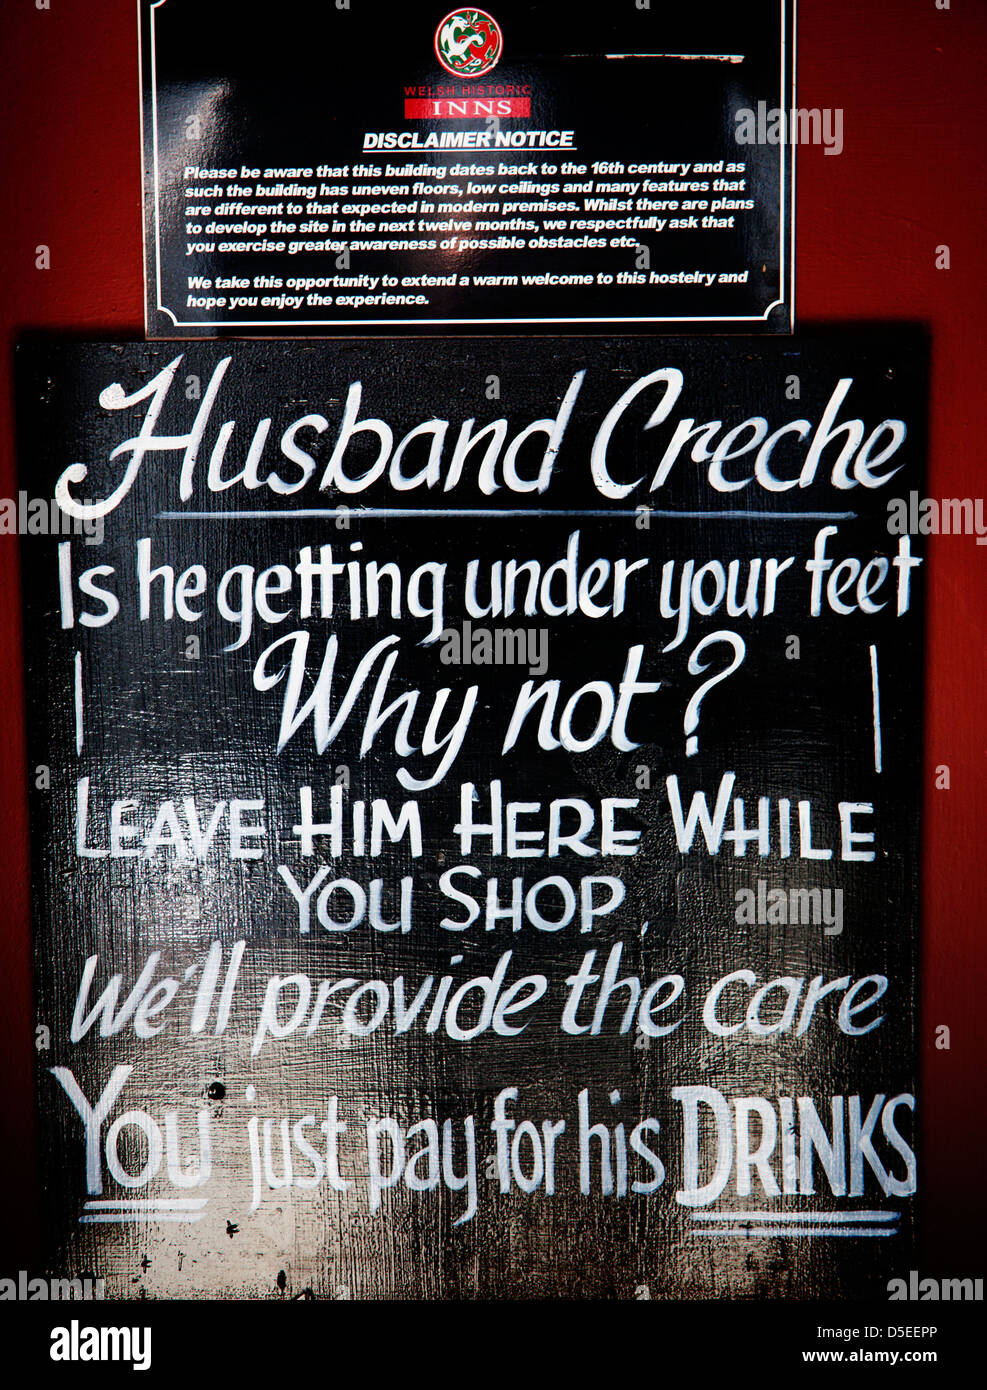 WELSH HISTORIC
INNS
DISCLAIMER NOTICE
Please be aware that this building dates back to the 16th century and as
such the building has uneven floors, low ceilings and many features that
are different to that expected in modern premises. Whilst there are plans
to develop the site in the next twelve months, we respectfully ask that
you exercise greater awareness of possible obstacles etc.
We take this opportunity to extend a warm welcome to this hostelry and
hope you enjoy the experience.
Husband Creche
Is he getting under your feet
Why not?
LEAVE HIM HERE WHILE
YOU SHOP
We'll provide the care
YOU just pay for his DRINKS
alamy
alamy
alamy
alamy
Image ID: D5EEPP
www.alamy.com